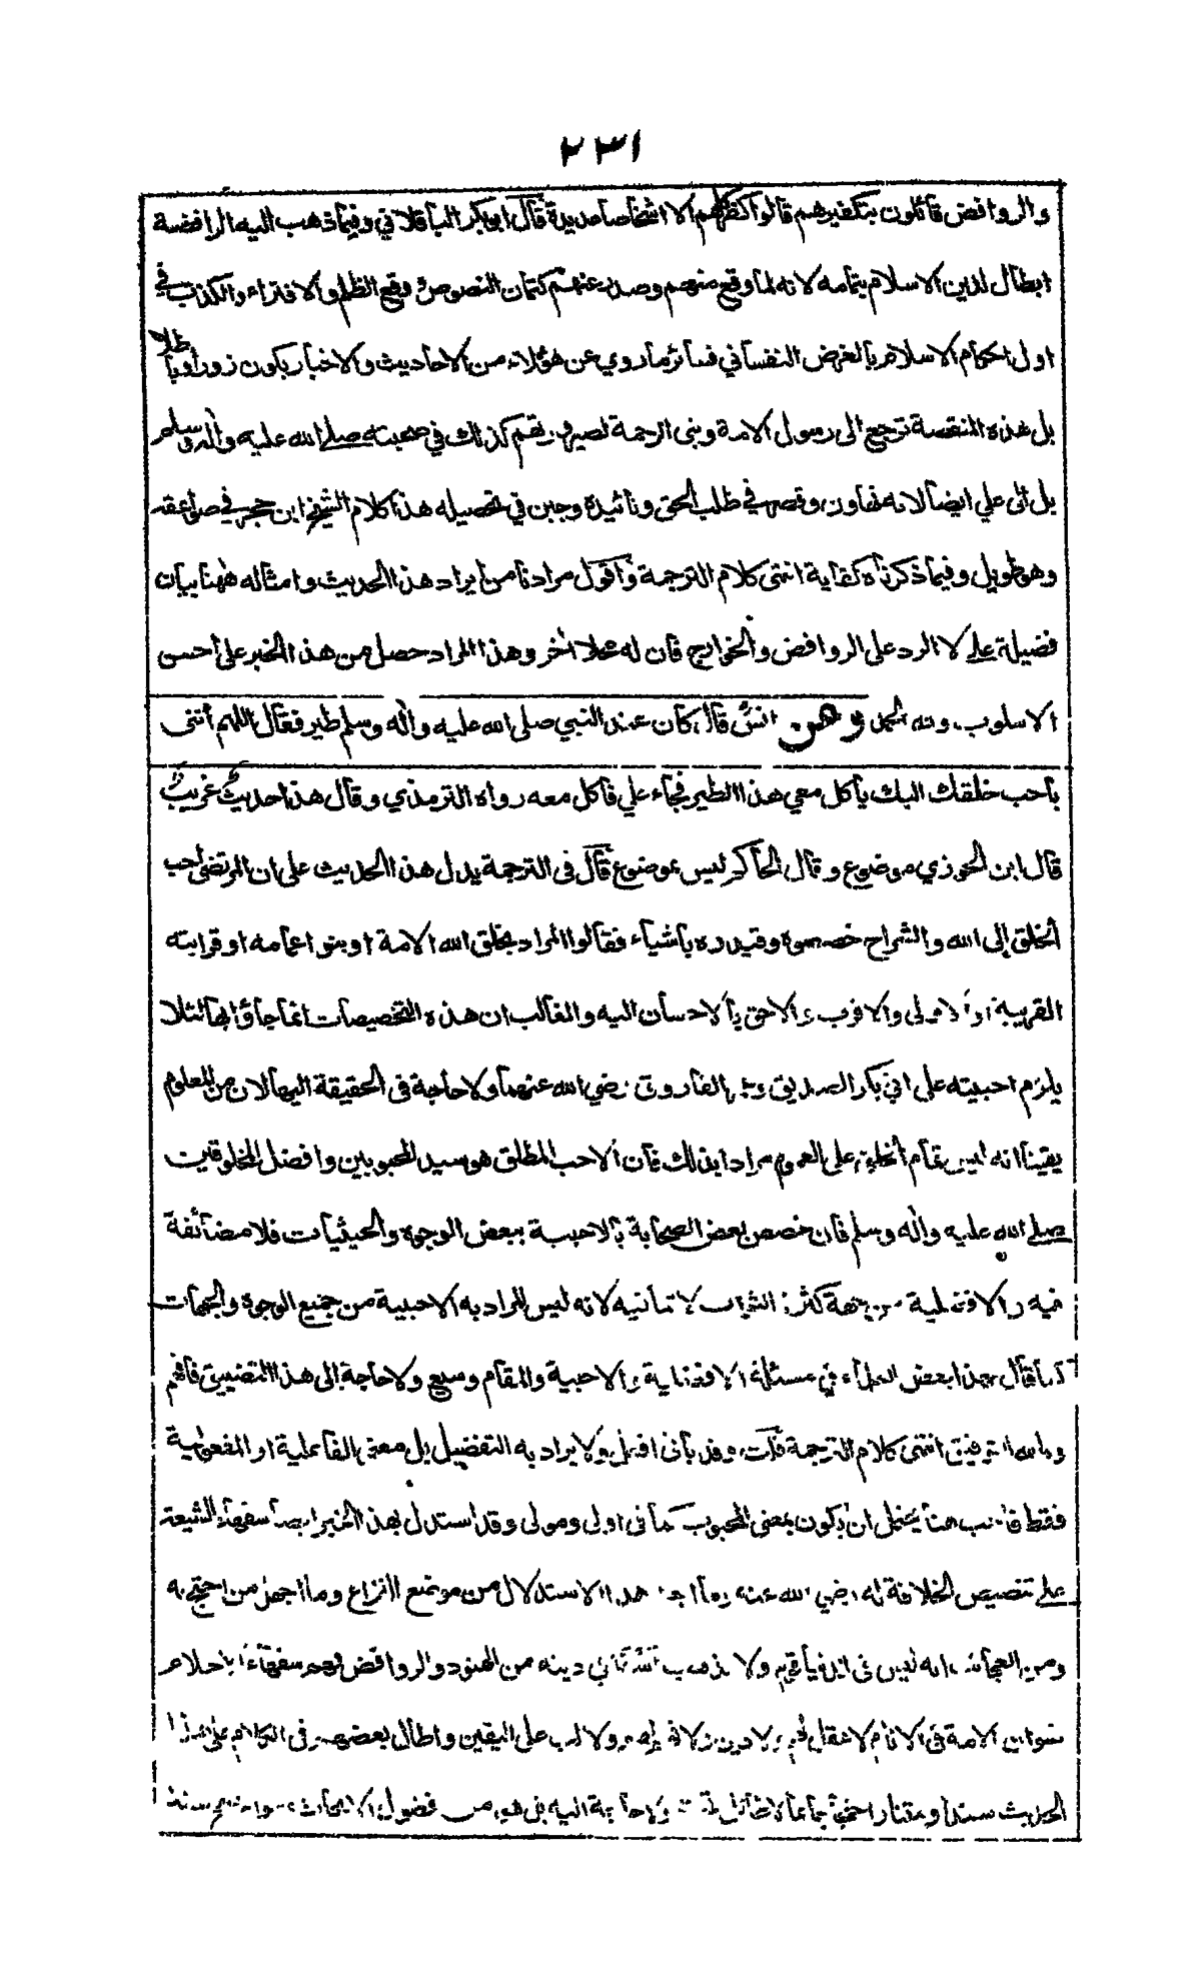 ٢٣١
والروافض قائلون بتكفيرهم قالوا كفر كلهم الا اشخاصا عديدة قال ابو بكر الباقلاني وفيما ذهب اليه الرافضة
ابطال لدين الاسلام بتمامه لانه لما وقع منهم وصدر عنهم كتمان النصوص وقع الظلم والافتراء والكذب في
اول احكام الاسلام بالغرض النفساني فسائر ما روي عن هؤلاء من الاحاديث والاخبار يكون زورا وباطلا
بل هذه المنقصة ترجع الى رسول الامة ونبي الرحمة لصيرورتهم كذلك في صحبته صلى الله عليه واله وسلم
بل الى علي ايضا لانه تهاون وقصر في طلب الحق وتائيده وجبن في تحصيله هذا كلام الشيخ ابن حجر في صواعقه
وهو طويل وفيما ذكرناه كفاية انتهى كلام الترجمة واقول مرادنا من ايراد هذا الحديث وامثاله ههنا بيان
فضيلة علي لا الرد على الروافض والخوارج فان له محلا اخر وهذا المراد حصل من هذا الخبر على احسن
الاسلوب ولله الحمد وعن انس قال كان عند النبي صلى الله عليه واله وسلم طير فقال اللهم أتني
باحب خلقك اليك يأكل معي هذا الطير فجاء علي فاكل معه رواه الترمذي وقال هذا حديث غريب
قال ابن الجوزي موضوع وقال الحاكم ليس بموضوع قال في الترجمة يدل هذا الحديث على ان المرتضى احب
الخلق الى الله والشراح خصصوه وقيدوه باشياء فقالوا المراد بخلق الله الامة او بنو اعمامه او قرابته
القريبة او الاولى والاقرب والاحق بالاحسان اليه والغالب ان هذه التخصيصات انما جاؤا بها لئلا
يلزم احبيته على ابي بكر الصديق وعمر الفاروق رضي الله عنهما ولا حاجة في الحقيقة اليها لان من المعلوم
يقينا انه ليس تمام الخلق على العموم مرادا بذلك فان الاحب المطلق هو سيد المحبوبين وافضل المخلوقين
صلى الله عليه واله وسلم فان خصص بعض الصحابة بالاحبية ببعض الوجوه والحيثيات فلا مضائقة
فيه والافضلية من جهة كثرة الثواب لا تنافيه لانه ليس المراد به الاحبية من جميع الوجوه والجهات
كما قال بهذا بعض العلماء في مسئلة الافضلية والاحبية والمقام وسيع ولا حاجة الى هذا التضييق فافهم
وبالله التوفيق انتهى كلام الترجمة قلت وقد يأتي افعل ولا يراد به التفضيل بل معنى الفاعلية او المفعولية
فقط فاحب هنا يحتمل ان يكون بمعنى المحبوب كما في اولى ومولى وقد استدل بهذا الخبر ايضا سفهاء الشيعة
على تنصيص الخلافة له رضي الله عنه وما ابعد هذا الاستدلال من موضع النزاع وما اجهل من احتج به
ومن العجائب انه ليس في الدنيا قوم ولا مذهب اشد في دينه من الهنود والروافض فهم سفهاء الاحلام
نسوان الامة في الانام لا عقل لهم ولا دين ولا لب على اليقين واطال بعضهم في الكلام على هذا
الحديث سندا ومتنا ولا حاجة اليه بل هو من فضول الابحاث